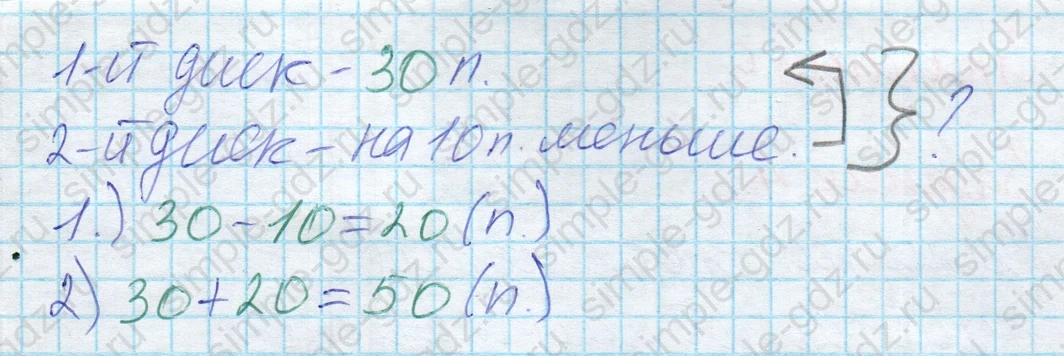 1-й диск - 30 п.
2-й диск - на 10 п. меньше. ?
1.) 30-10=20 (п.)
2) 30+20=50 (п.)
simple-gdz.ru